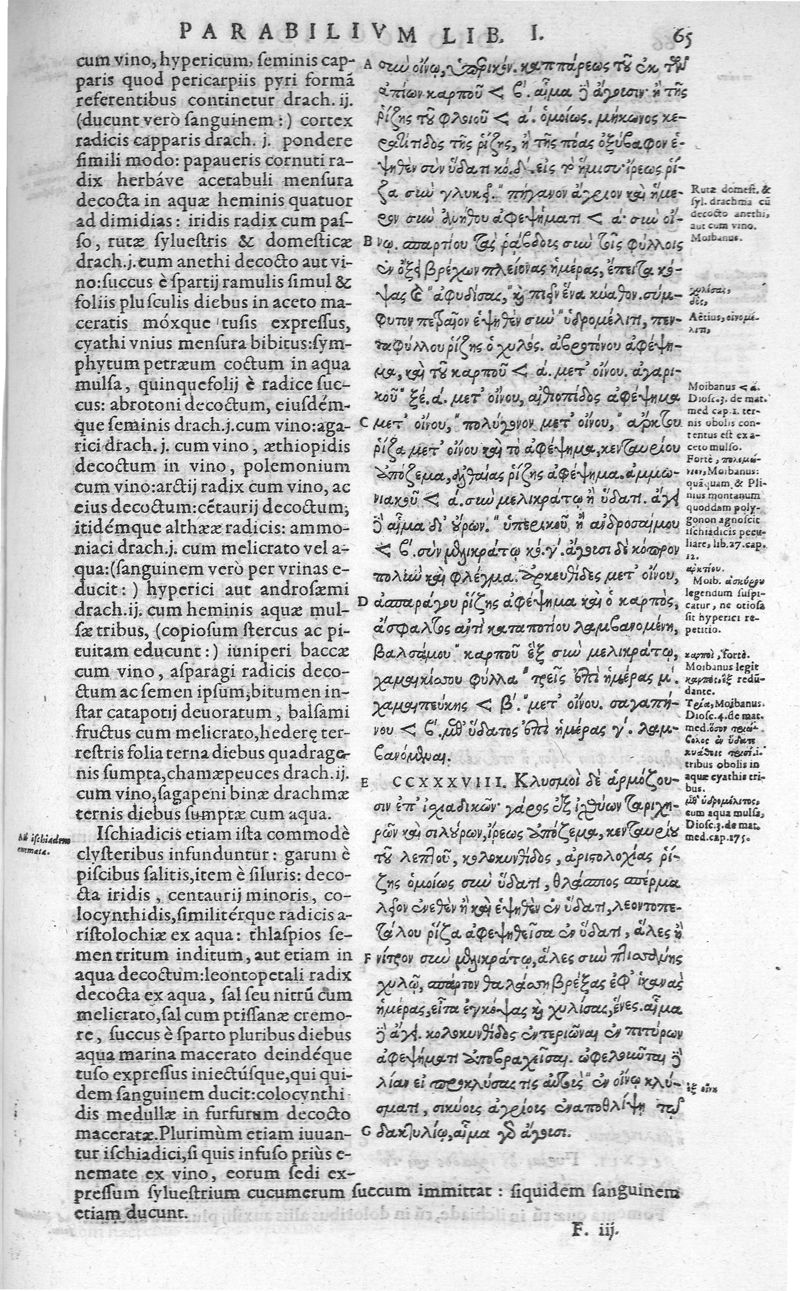 PARABILIVM LIB. I. 65
cum vino, hypericum, ſeminis cap-
paris quod pericarpiis pyri formā
referentibus continetur drach. ij.
(ducunt verò ſanguinem:) cortex
radicis capparis drach. j. pondere
ſimili modo: papaueris cornuti ra-
dix herbáve acetabuli menſura
decocta in aquæ heminis quatuor
ad dimidias: iridis radix cum paſ-
ſo, rutæ ſylueſtris & domeſticæ
drach.j.cum anethi decocto aut vi-
no:ſuccus è ſpartij ramulis ſimul &
foliis pluſculis diebus in aceto ma-
ceratis móxque tuſis expreſſus,
cyathi vnius menſura bibitus:ſym-
phytum petræum coctum in aqua
mulſa, quinquefolij è radice ſuc-
cus: abrotoni decoctum, eiuſdém-
que ſeminis drach.j.cum vino:aga-
rici drach. j. cum vino, æthiopidis
decoctum in vino, polemonium
cum vino:arctij radix cum vino, ac
eius decoctum:cētaurij decoctum;
itidémque althææ radicis: ammo-
niaci drach.j. cum melicrato vel a-
qua:(ſanguinem verò per vrinas e-
ducit:) hyperici aut androſæmi
drach.ij. cum heminis aquæ mul-
ſæ tribus, (copioſum ſtercus ac pi-
tuitam educunt:) iuniperi baccæ
cum vino, aſparagi radicis deco-
ctum ac ſemen ipſum,bitumen in-
ſtar catapotij deuoratum, balſami
fructus cum melicrato,hederę ter-
reſtris folia terna diebus quadrage-
nis ſumpta,chamæpeuces drach.ij.
cum vino,ſagapeni binæ drachmæ
ternis diebus ſumptæ cum aqua.
Iſchiadicis etiam iſta commodè
clyſteribus infunduntur: garum è
piſcibus ſalitis,item è ſiluris: deco-
cta iridis, centaurij minoris, co-
locynthidis,ſimilitérque radicis a-
riſtolochiæ ex aqua: thlaſpios ſe-
men tritum inditum, aut etiam in
aqua decoctum:leontopetali radix
decocta ex aqua, ſal ſeu nitrū cum
melicrato,ſal cum ptiſſanæ cremo-
re, ſuccus è ſparto pluribus diebus
aqua marina macerato deindéque
tuſo expreſſus iniectúſque,qui qui-
dem ſanguinem ducit:colocynthi
dis medullæ in furfurum decocto
maceratæ.Plurimùm etiam iuuan-
tur iſchiadici,ſi quis infuſo priùs e-
nemate ex vino, eorum ſedi ex-
preſſum ſylueſtrium cucumerum ſuccum immittat: ſiquidem ſanguinem
etiam ducunt.
A σὺν οἴνῳ, ὑπερικόν. καππάρεως τοῦ ἐκ τῶν
ἀπίων καρποῦ < β'. αἷμα ἢ ἄγουσιν· ἢ τῆς
ῥίζης τοῦ φλοιοῦ < ά. ὁμοίως. μήκωνος κε-
ρατίτιδος τῆς ῥίζης, ἢ τῆς πόας ὀξύβαφον ἑ-
ψηθὲν σὺν ὕδατι κο. δ'. εἰς τὸ ἥμισυ· ἴρεως ῥί-
ζα σὺν γλυκεῖ. πήγανον ἄγριον καὶ ἥμε-
ρον σὺν ἀνήθου ἀφεψήματι < ά· σὺν οἴ-
B νῳ. σπαρτίου τὰς ῥάβδους σὺν τοῖς φύλλοις
ἐν ὄξει βρέχων πλείονας ἡμέρας, ἔπειτα κό-
ψας ἀφυδίσας, καὶ πιεῖν ἕνα κύαθον. σύμ-
φυτον πετραῖον ἑψηθὲν σὺν ὑδρομέλιτι, πεν-
ταφύλλου ῥίζης ὁ χυλός. ἀβροτόνου ἀφέψη-
μα, καὶ τοῦ καρποῦ < ά. μετ' οἴνου. ἀγαρι-
κοῦ ξέ. ά. μετ' οἴνου, αἰθιοπίδος ἀφέψημα
C μετ' οἴνου, πολύγονον μετ' οἴνου, ἄρκτου
ῥίζα μετ' οἴνου καὶ τὸ ἀφέψημα, κενταυρίου
ἀπόζεμα, ἀλθαίας ῥίζης ἀφέψημα. ἀμμω-
νιακοῦ < ά. σὺν μελικράτῳ ἢ ὕδατι. ἄγει
ἢ αἷμα δι' οὔρων. ὑπερικοῦ, ἢ ἀνδροσαίμου
< β'. σὺν μελικράτῳ κο. γ'. ἄγουσι δὲ κόπρον
πολλὴν καὶ φλέγμα. ἀρκευθίδες μετ' οἴνου,
D ἀσπαράγου ῥίζης ἀφέψημα καὶ ὁ καρπὸς,
ἄσφαλτος ἀντὶ καταποτίου λαμβανομένη,
βαλσάμου καρποῦ ἓξ σὺν μελικράτῳ,
χαμαικίσσου φύλλα τρεῖς ἐπὶ ἡμέρας μ.
χαμαιπεύκης < β'. μετ' οἴνου. σαγαπή-
νου < β. μεθ' ὕδατος ἐπὶ ἡμέρας γ'. λαμ-
βανόμεναι.
E CCXXXVIII. Κλυσμοὶ δὲ ἁρμόζου-
σιν ἐπ' ἰσχιαδικῶν· γάρος ἐξ ἰχθύων ταριχη-
ρῶν καὶ σιλούρων, ἴρεως ἀπόζεμα, κενταυρίου
τοῦ λεπτοῦ, κολοκυνθίδος, ἀριστολοχίας ῥί-
ζης ὁμοίως σὺν ὕδατι, θλάσπεος σπέρμα
λεῖον ἐνεθὲν ἢ καὶ ἑψηθὲν ἐν ὕδατι, λεοντοπε-
τάλου ῥίζα ἀφεψηθεῖσα ἐν ὕδατι, ἅλες ἢ
F νίτρον σὺν μελικράτῳ, ἅλες σὺν πτισάνης
χυλῷ, σπάρτον θαλάσσῃ βρέξας ἐφ' ἱκανὰς
ἡμέρας, εἶτα ἐγκόψας καὶ χυλίσας, ἕνες. αἷμα
ἢ ἄγει. κολοκυνθίδος ἐντεριῶναι ἐν πιτύρων
ἀφεψήματι ἀποβραχεῖσαι. ὠφελοῦνται ἢ
λίαν εἰ προκλύσας τις αὐτοῖς ἐν οἴνῳ κλύ-
σματι, σικύους ἀγρίους ἐναποθλίψῃ τῷ
G δακτυλίῳ, αἷμα γὰρ ἄγουσι.
Rutæ domeſt. &
ſyl. drachma cū
decocto anethi,
aut cum vino.
Moibanus.
χυλίσας,
δός,
Aëtius, οἰνομέ-
λιτι,
Moibanus < ά.
Dioſc.3. de mat.
med cap.1. ter-
nis obolis con-
tentus eſt ex a-
ceto mulſo.
Fortè, πολεμώ-
νιον, Moibanus:
quāquam & Pli-
nius montanum
quoddam poly-
gonon agnoſcit
iſchiadicis pecu-
liare, lib.27.cap.
12.
ἀρκτίου.
Moib. ἀσκύρου
legendum ſuſpi-
catur, ne otioſa
ſit hyperici re-
petitio.
καρποὶ, fortè.
Moibanus legit
καρποὶ, ἓξ redū-
dante.
Τρία, Moibanus.
Dioſc.4. de mat.
med.
tribus obolis in
aquæ cyathis tri-
bus.
μεθ' ὑδρομέλιτος,
cum aqua mulſa,
Dioſc.3.de mat.
med.cap.175.
ἐξ οἴνου
Ad iſchiadem
enemata.
F. iij.